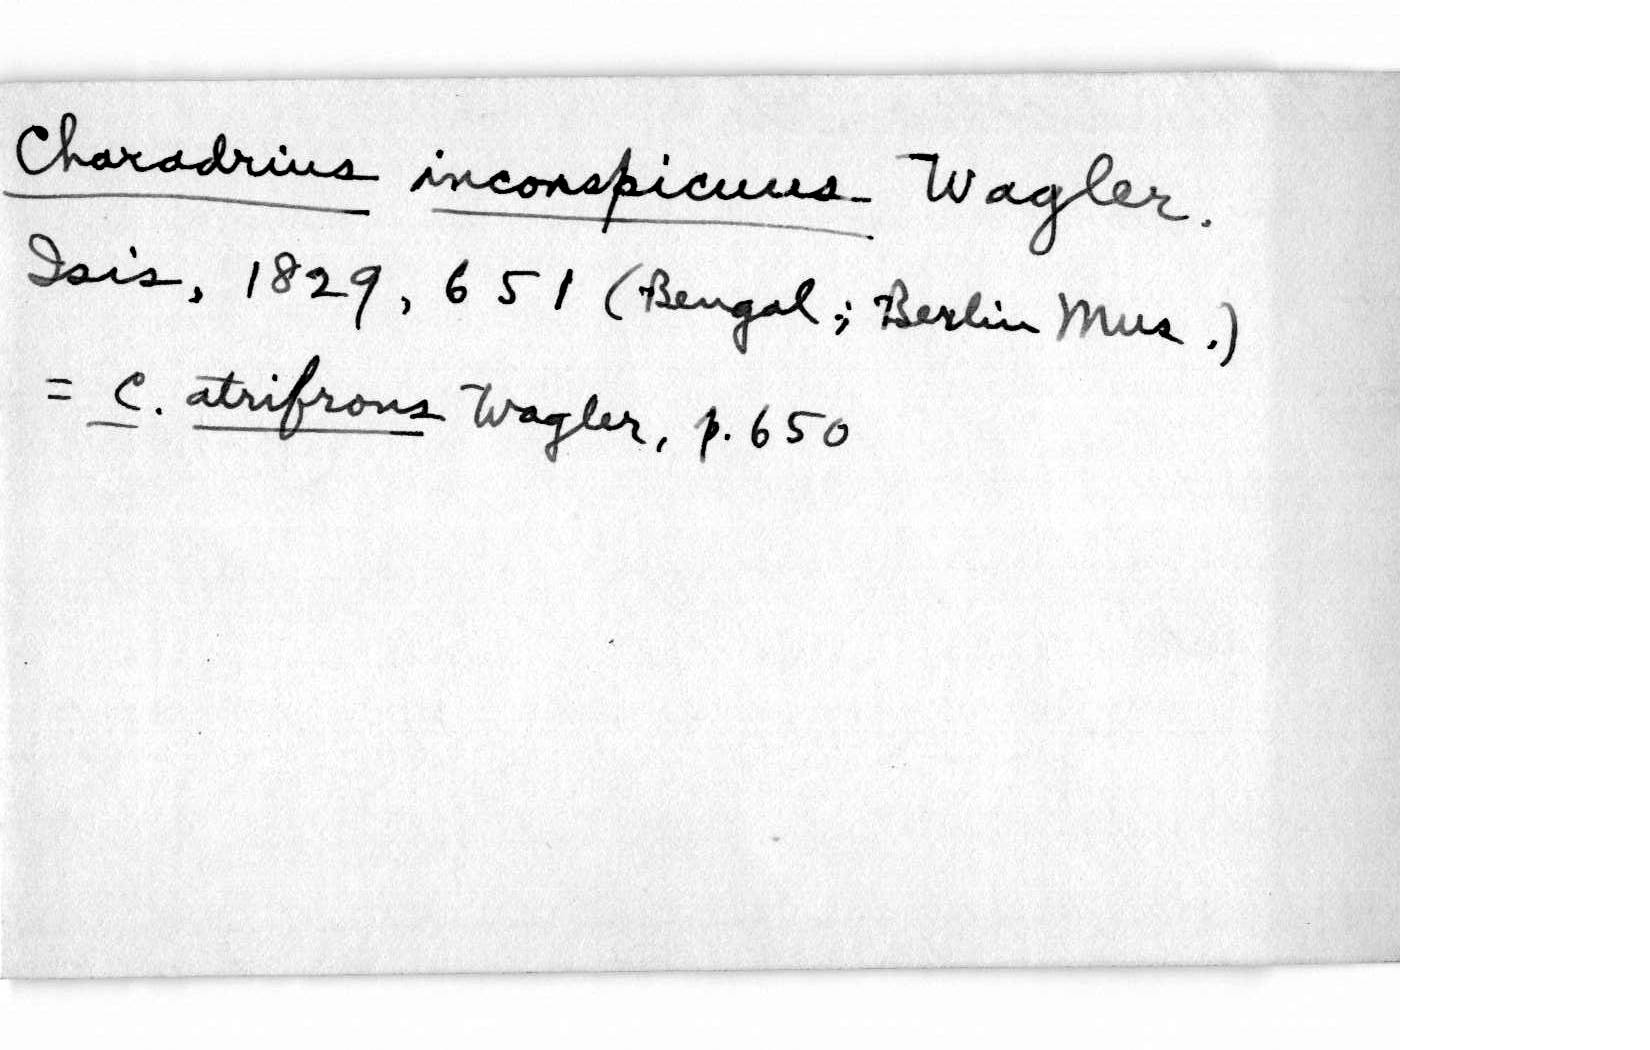 Charadrius inconspicuus Wagler.
Isis, 1829, 651 (Bengal; Berlin Mus.)
= C. atrifrons Wagler, p. 650